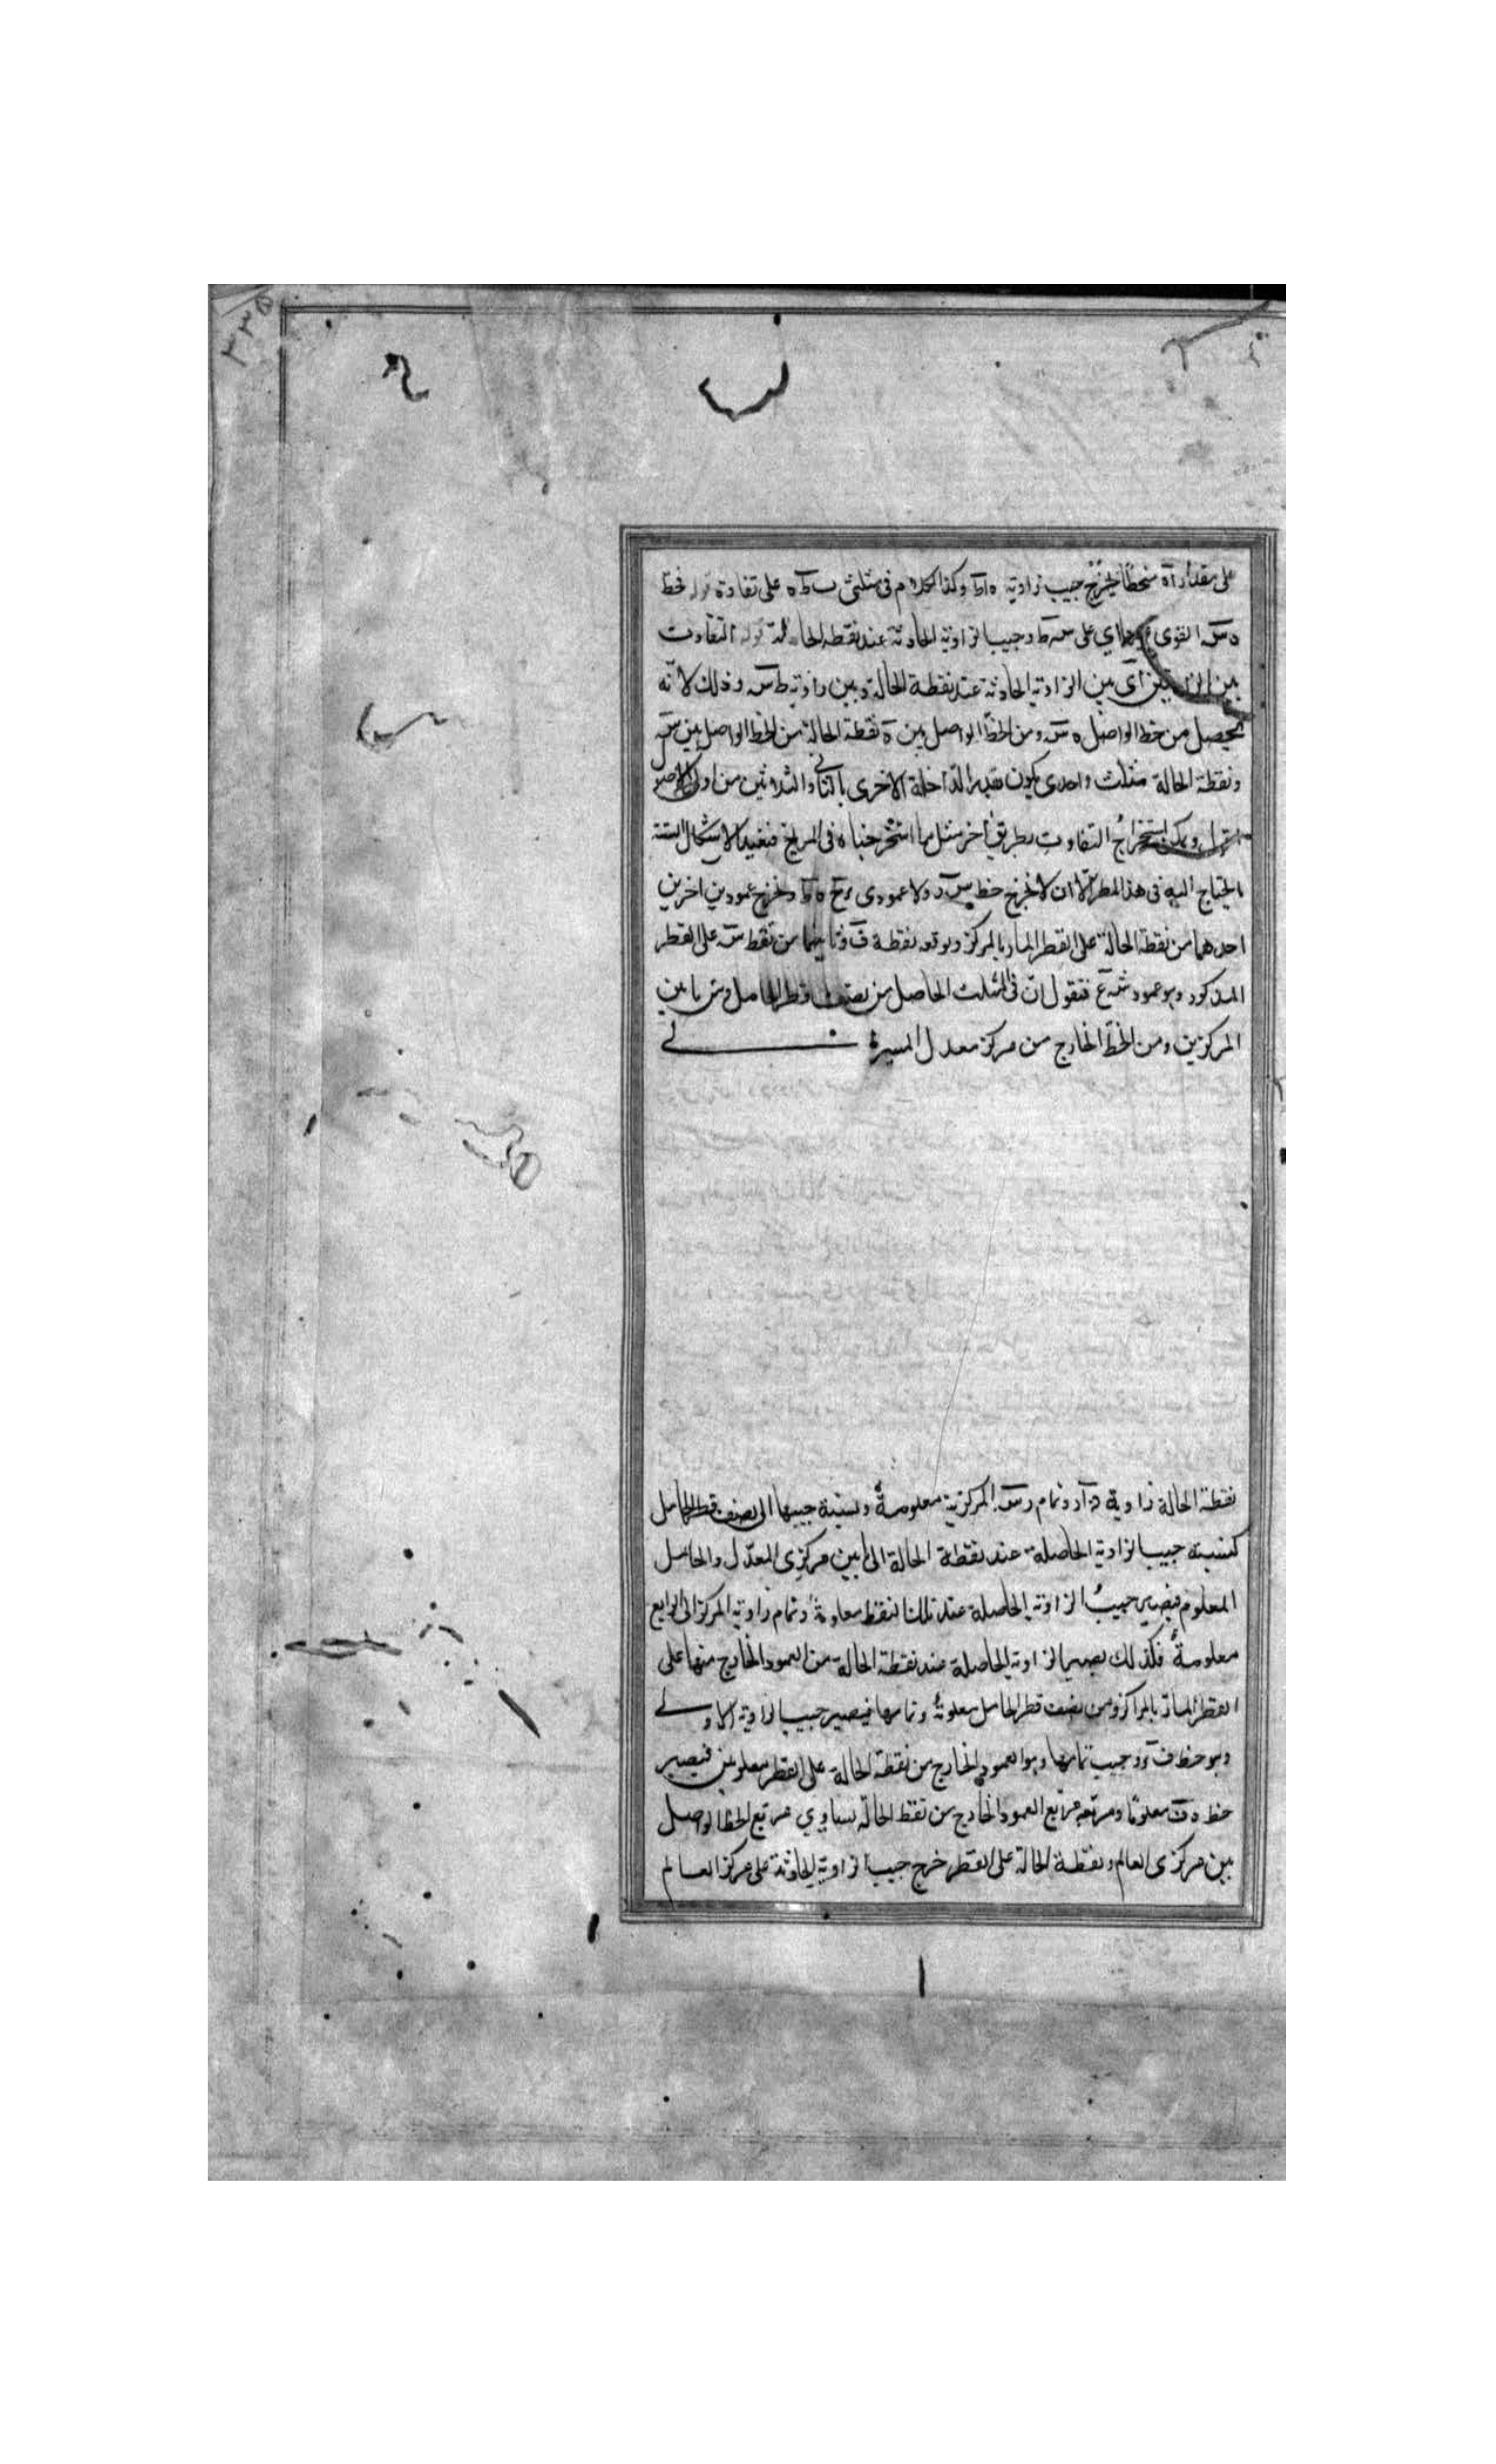 ٣٣٥
على مقدار اه منحطا ليخرج جيب زاوية ه ا ط وكذا الكلام في مثلثي ب ط ه على تفاوة قوله فخط
ه س القوي على س ط وجيب الزاوية الحادثة عند نقطة الحالة قوله التفاوت
بين الزاويتين اي بين الزاوية الحادثة عند نقطة الحالة وبين زاوية ط س وذلك لانه
يحصل من خط الواصل ه س ومن الخط الواصل بين ه نقطة الحالة من الخط الواصل بين س
ونقطة الحالة مثلث واحدى يكون هذه الداخلة الاخرى بالثاني والثلاثين من اولى الاصول
اقول ويمكن استخراج التفاوت بطريق اخر مثل ما استخرجناه في المريخ فنعيد الاشكال الستة
المحتاج اليه في هذا المطر الا ان لا نخرج خط س د ولا عمودي ه ط ونخرج عمودين اخرين
احدهما من نقطة الحالة على القطر المار بالمركز وموقعه نقطة ف وثانيهما من نقط س على القطر
المذكور وهو عمود ش ع فنقول ان في المثلث الحاصل من نصف قطر الحامل ومن ما بين
المركزين ومن الخط الخارج من مركز معدل المسير في
نقطة الحالة زاوية د ا ر وتمام رس المركزية معلومة ونسبة جيبها الى نصف قطر الحامل
كنسبة جيب الزاوية الحاصلة عند نقطة الحالة الى ما بين مركزي المعدل والحامل
المعلوم فيصير جيب الزاوية الحاصلة عند تلك النقط معلومة وتمام زاوية المركز الى الرابع
معلومة فكذلك يصير الزاوية الحاصلة عند نقطة الحالة من العمود الخارج منها على
القطر المار بالمراكز ومن نصف قطر الحامل معلومة وتمامها فيصير جيب الزاوية الاولى
وهو خط ف ء وجيب تمامها وهو العمود الخارج من نقطة الحالة على القطر معلومين فيصير
خط د ف معلوما ومربعه مربع العمود الخارج من نقط الحالة يساوي مربع الخط الواصل
بين مركزي العالم ونقطة الحالة على القطر خرج جيب الزاوية الحادثة على مركز العالم